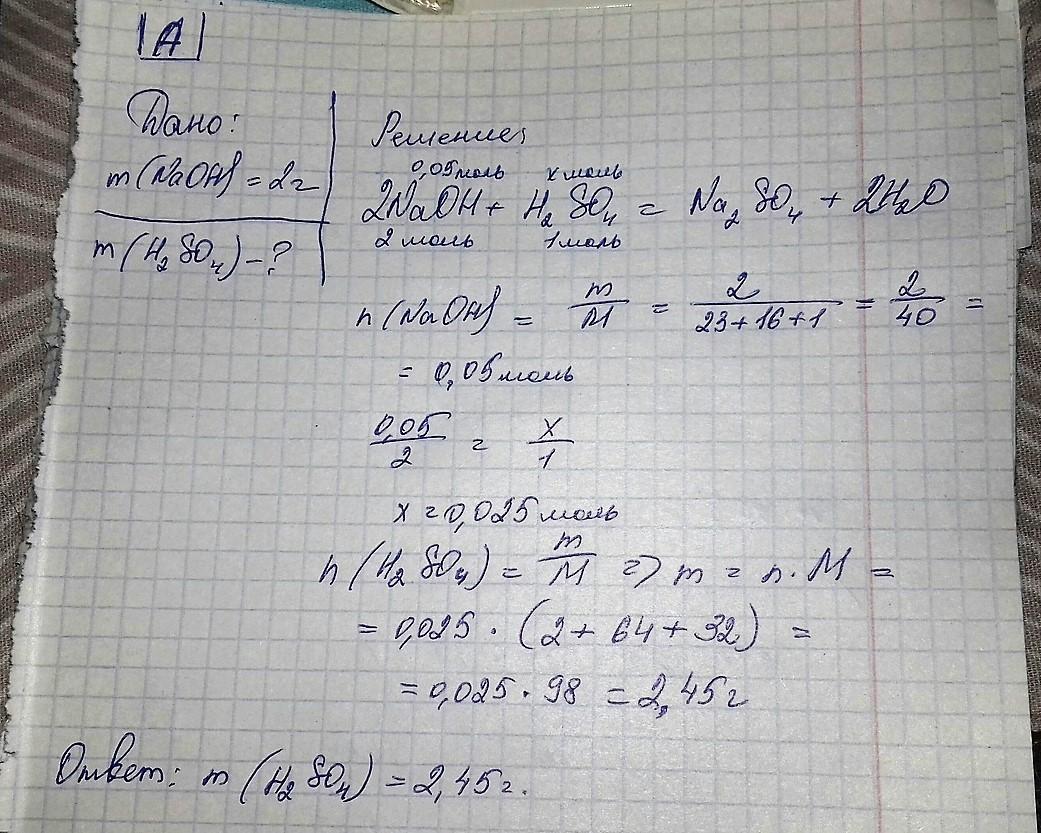 |A|
Дано:
m(NaOH) = 2г
m(H₂SO₄) - ?
Решение:
0,05моль x моль
2NaOH + H₂SO₄ = Na₂SO₄ + 2H₂O
2 моль 1 моль
n(NaOH) = m/M = 2/(23+16+1) = 2/40 =
= 0,05 моль
0,05/2 = x/1
x = 0,025 моль
n(H₂SO₄) = m/M => m = n·M =
= 0,025 · (2 + 64 + 32) =
= 0,025 · 98 = 2,45 г
Ответ: m(H₂SO₄) = 2,45 г.